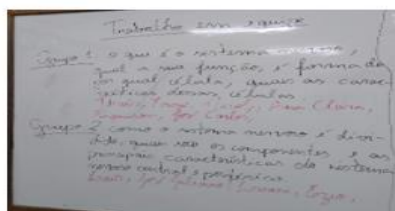 Trabalho em equipe
Grupo 1 o que é o sistema nervoso,
qual a sua função, é formado
por qual célula, quais as carac-
terísticas dessas células
Clara,
José Carlos,
Grupo 2 como o sistema nervoso é divi-
dido, quais são os componentes e as
principais características do sistema
nervoso central e periférico.